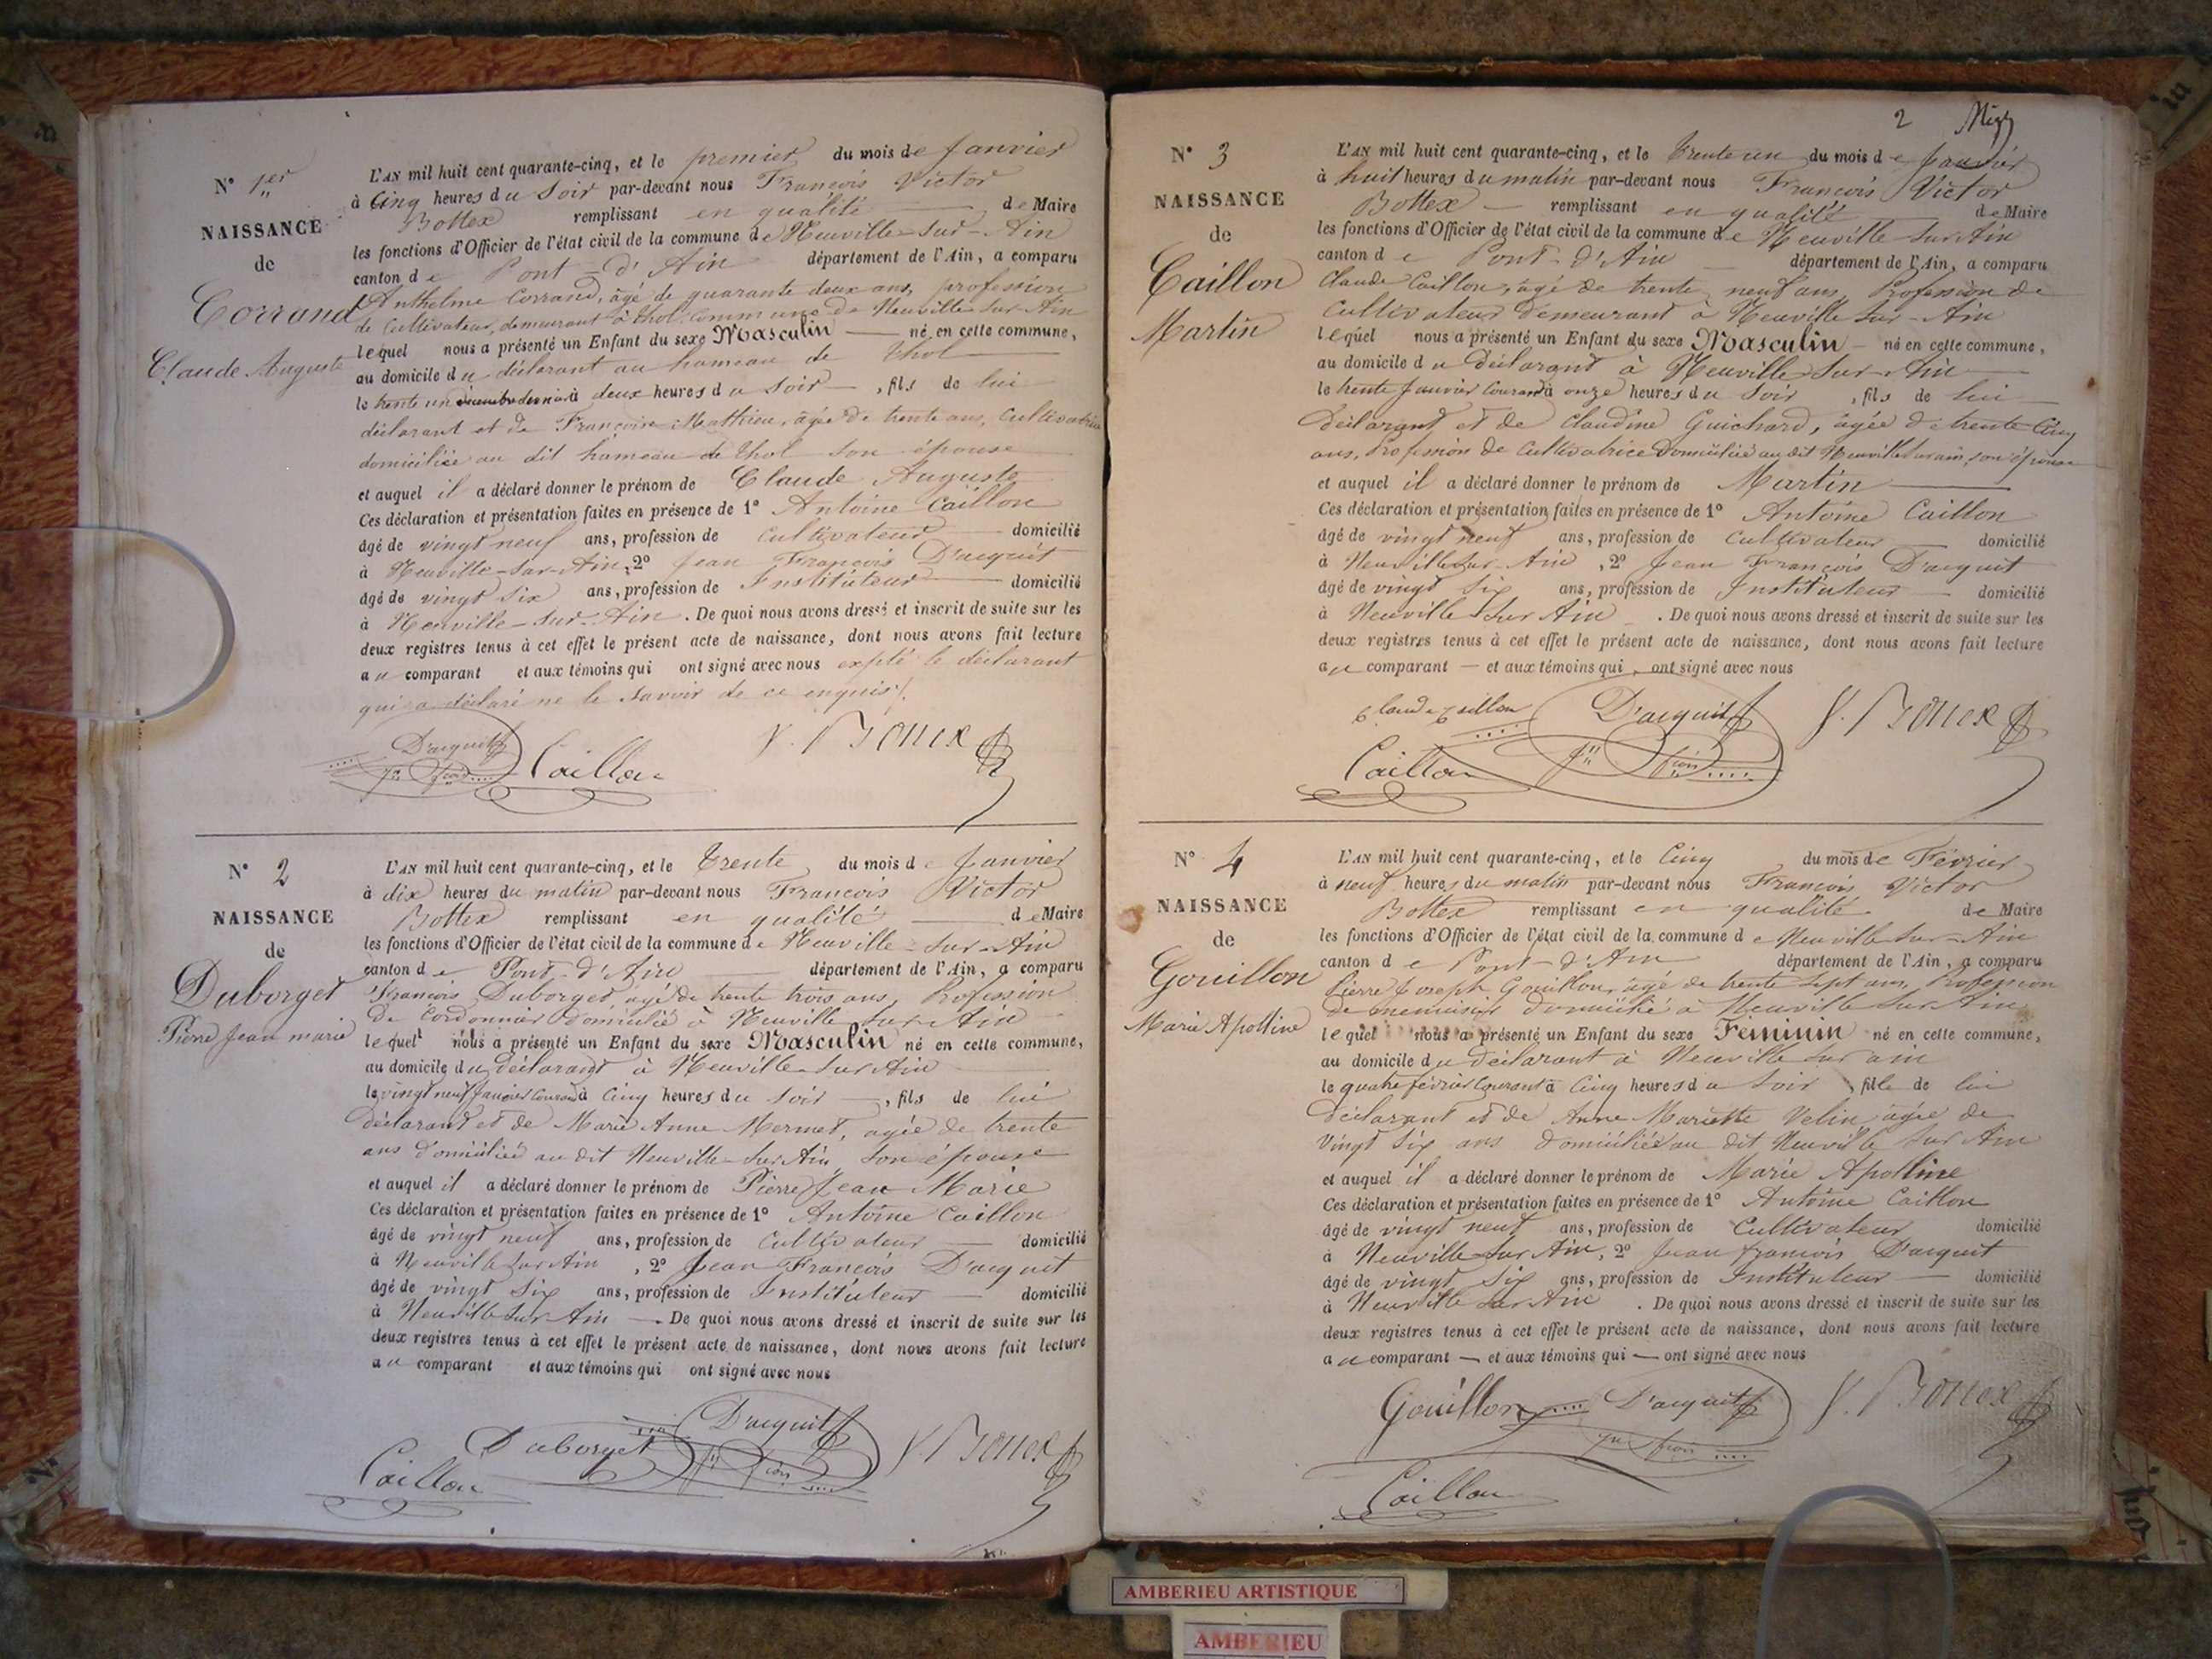 N° 1er
NAISSANCE
de
Corrand
Claude Auguste
L'AN mil huit cent quarante-cinq, et le premier du mois de Janvier
à Cinq heures du Soir par-devant nous François Victor
Bottex remplissant en qualité de Maire
les fonctions d'Officier de l'état civil de la commune de Neuville-sur-Ain
canton de Pont-d'Ain département de l'Ain, a comparu
Anthelme Corrand, âgé de quarante deux ans, profession
de Cultivateur, demeurant à Thol, Commune de Neuville sur Ain
lequel nous a présenté un Enfant du sexe Masculin né en cette commune,
au domicile du déclarant au hameau de Thol
le trente un décembre dernier à deux heures du Soir, fils de lui
déclarant et de Françoise Mathieu, âgée de trente ans, Cultivatrice
domiciliée au dit hameau de Thol son épouse
et auquel il a déclaré donner le prénom de Claude Auguste
Ces déclaration et présentation faites en présence de 1° Antoine Caillon
âgé de vingt neuf ans, profession de Cultivateur domicilié
à Neuville-sur-Ain, 2° Jean François D'acquit
âgé de vingt six ans, profession de Instituteur domicilié
à Neuville-sur-Ain. De quoi nous avons dressé et inscrit de suite sur les
deux registres tenus à cet effet le présent acte de naissance, dont nous avons fait lecture
au comparant et aux témoins qui ont signé avec nous expté le déclarant
qui a déclaré ne le savoir de ce enquis.
D'acquit
Jn frois
Caillon
V. Bottex
N° 2
NAISSANCE
de
Duborget
Pierre Jean marie
L'AN mil huit cent quarante-cinq, et le Trente du mois de Janvier
à dix heures du matin par-devant nous François Victor
Bottex remplissant en qualité de Maire
les fonctions d'Officier de l'état civil de la commune de Neuville-sur-Ain
canton de Pont-d'Ain département de l'Ain, a comparu
François Duborget, âgé de trente trois ans, Profession
de Cordonnier domicilié à Neuville sur Ain
lequel nous a présenté un Enfant du sexe Masculin né en cette commune,
au domicile du déclarant à Neuville-sur Ain
le vingt neuf Janvier Courant à Cinq heures du Soir, fils de lui
déclarant et de Marie Anne Mermet, agée de trente
ans domiciliée au dit Neuville-sur Ain son épouse
et auquel il a déclaré donner le prénom de Pierre Jean Marie
Ces déclaration et présentation faites en présence de 1° Antoine Caillon
âgé de vingt neuf ans, profession de Cultivateur domicilié
à Neuville sur Ain, 2° Jean François D'acquit
âgé de vingt six ans, profession de Instituteur domicilié
à Neuville sur Ain. De quoi nous avons dressé et inscrit de suite sur les
deux registres tenus à cet effet le présent acte de naissance, dont nous avons fait lecture
au comparant et aux témoins qui ont signé avec nous
Duborget
D'acquit
Jn frois
V. Bottex
Caillon
2
N° 3
NAISSANCE
de
Caillon
Martin
L'AN mil huit cent quarante-cinq, et le Trente un du mois de Janvier
à huit heures du matin par-devant nous François Victor
Bottex remplissant en qualité de Maire
les fonctions d'Officier de l'état civil de la commune de Neuville sur Ain
canton de Pont-d'Ain département de l'Ain, a comparu
Claude Caillon, agé de trente neuf ans, Profession de
Cultivateur demeurant à Neuville sur-Ain
lequel nous a présenté un Enfant du sexe Masculin né en cette commune,
au domicile du déclarant à Neuville sur Ain
le trente Janvier Courant à onze heures du Soir, fils de lui
déclarant et de Claudine Guichard, âgée de trente Cinq
ans, Profession de Cultivatrice Domiciliée au dit Neuville sur ain, son épouse
et auquel il a déclaré donner le prénom de Martin
Ces déclaration et présentation faites en présence de 1° Antoine Caillon
âgé de vingt neuf ans, profession de Cultivateur domicilié
à Neuville sur Ain, 2° Jean François D'acquit
âgé de vingt six ans, profession de Instituteur domicilié
à Neuville sur Ain. De quoi nous avons dressé et inscrit de suite sur les
deux registres tenus à cet effet le présent acte de naissance, dont nous avons fait lecture
au comparant et aux témoins qui ont signé avec nous
Claude Caillon
D'acquit
Jn frois
V. Bottex
Caillon
N° 4
NAISSANCE
de
Gouillon
Marie Apolline
L'AN mil huit cent quarante-cinq, et le Cinq du mois de Février
à neuf heures du matin par-devant nous François Victor
Bottex remplissant en qualité de Maire
les fonctions d'Officier de l'état civil de la commune de Neuville sur-Ain
canton de Pont-d'Ain département de l'Ain, a comparu
Pierre Joseph Gouillon, âgé de trente sept ans, Profession
de menuisier domicilié à Neuville sur Ain
lequel nous a présenté un Enfant du sexe Féminin né en cette commune,
au domicile du déclarant à Neuville sur ain
le quatre février Courant à Cinq heures du Soir, fille de lui
déclarant et de Anne Mariette Velin agée de
vingt six ans domiciliée au dit Neuville sur Ain
et auquel il a déclaré donner le prénom de Marie Apolline
Ces déclaration et présentation faites en présence de 1° Antoine Caillon
âgé de vingt neuf ans, profession de Cultivateur domicilié
à Neuville sur Ain, 2° Jean françois D'acquit
âgé de vingt six ans, profession de Instituteur domicilié
à Neuville sur Ain. De quoi nous avons dressé et inscrit de suite sur les
deux registres tenus à cet effet le présent acte de naissance, dont nous avons fait lecture
au comparant et aux témoins qui ont signé avec nous
Gouillon
D'acquit
Jn frois
V. Bottex
Caillon
AMBERIEU ARTISTIQUE
AMBERIEU